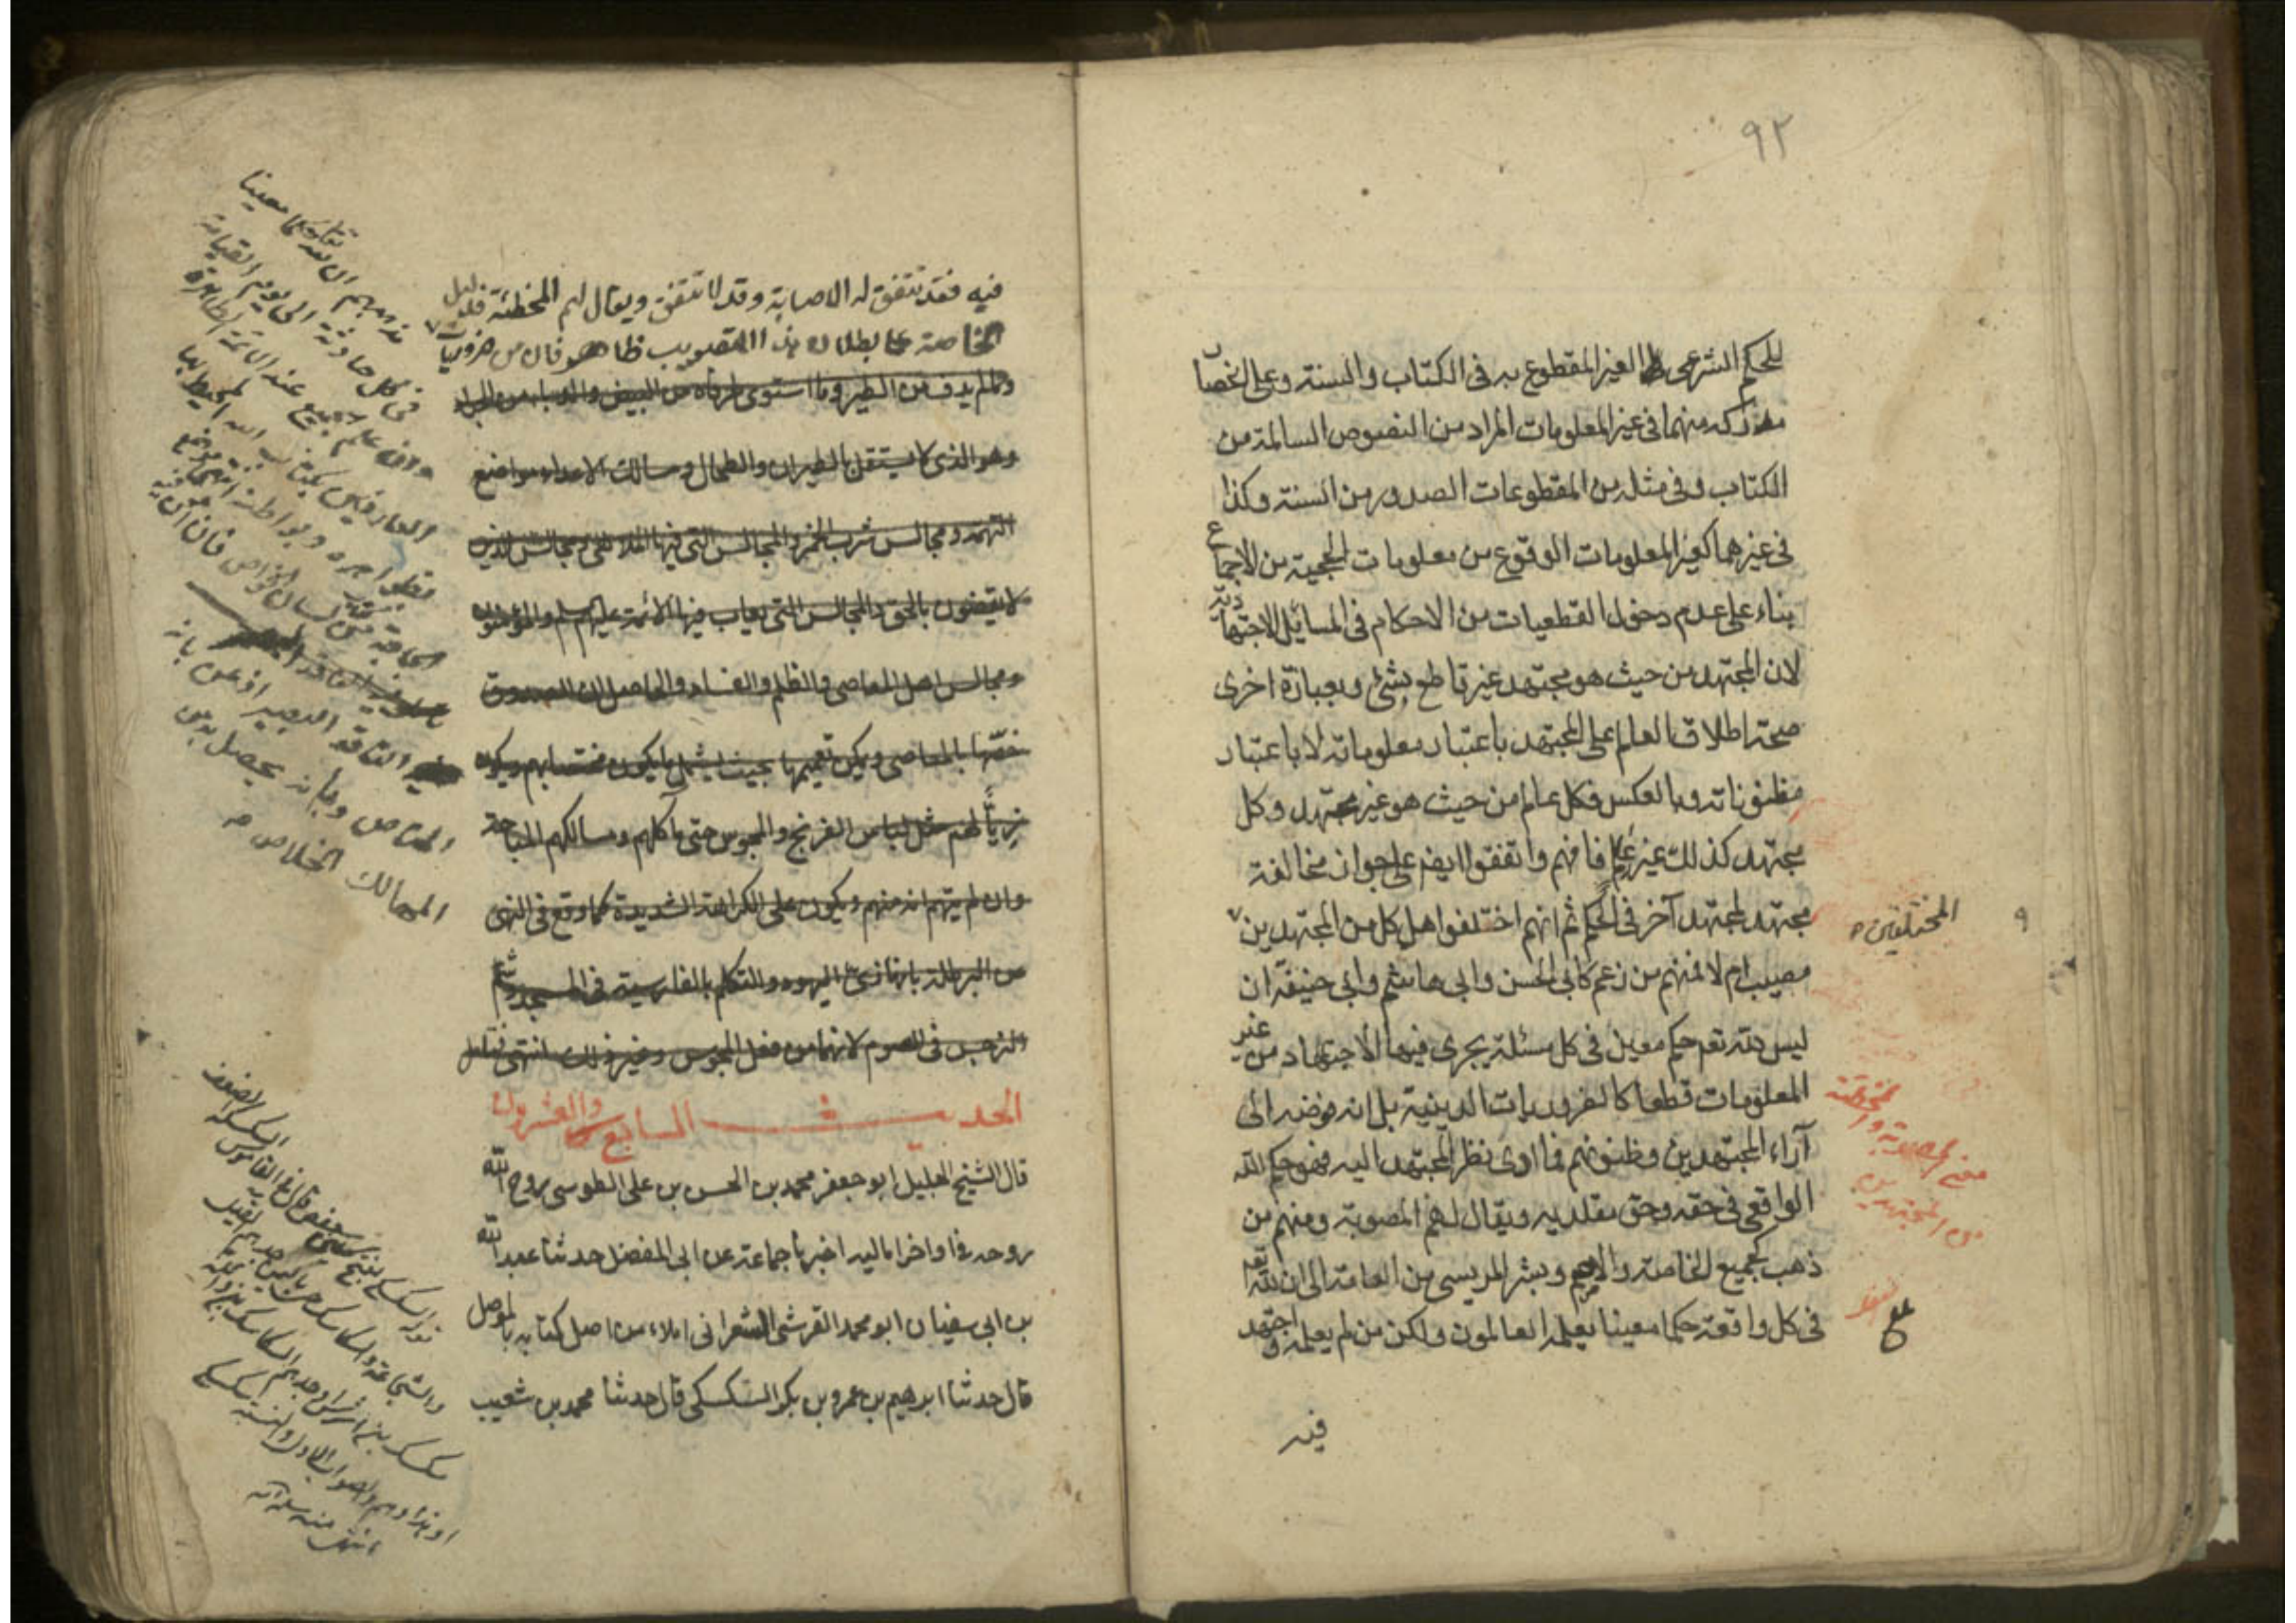 ٩٢
للحكم الشرعى الغير المقطوع به فى الكتاب والسنة وعلى انحصار
مدركه منهما فى غير المعلومات المراد من النصوص السالمة من
الكتاب وفى مثله من المقطوعات الصدور من السنة وكذا
فى غيرهما كغير المعلومات الوقوع من معلومات الحجية من الاجماع
بناء على عدم دخول القطعيات من الاحكام فى المسائل الاجتهادية
لان المجتهد من حيث هو مجتهد غير قاطع بشئ وبعبارة اخرى
صحة اطلاق العالم على المجتهد باعتبار معلوماته لا باعتبار
مظنوناته وبالعكس فكل عالم من حيث هو غير مجتهد وكل
مجتهد كذلك غير عالم فافهم واتفقوا ايضا على جواز مخالفة
مجتهد لمجتهد آخر فى الحكم ثم انهم اختلفوا هل كل من المجتهدين
المختلفين
مصيب ام لا فمنهم من زعم كابى الحسن وابى هاشم وابى حنيفة ان
ليس لله تعم حكم معين فى كل مسئلة يجرى فيها الاجتهاد من غير
المعلومات قطعا كالضروريات الدينية بل انه فوضه الى
معنى المصوبة والمخطئة
من المجتهدين
آراء المجتهدين وظنونهم فما ادى نظر المجتهد اليه فهو حكم الله
الواقعى فى حقه وحق مقلديه ويقال لهم المصوبة ومنهم من
ذهب كجميع الخاصة والاصم وبشر المريسى من العامة الى ان لله تعم
فى كل واقعة حكما معينا يعلمه العالمون ولكن من لم يعلمه واجتهد
فيه
فيه فقد تتفق له الاصابة وقد لا تتفق ويقال لهم المخطئة فدليل
الخاصة على بطلان هذا التصويب ظاهر فان من ضروريات
ومالم يدف من الطير وما استوى طرفاه من البيض والدبا من الجراد
وهو الذى لا يستقل بالطيران والطحال ومسالك الاعداء مواضع
التهمة ومجالس شرب الخمر والمجالس التى فيها الملاهى ومجالس الذين
لا يقضون بالحق والمجالس التى يعاب فيها الائمة عليهم سلم والمؤمنون
ومجالس اهل المعاصى والظلم والفساد والحاصل ان الصدوق
خصها بالمعاصى ويمكن تعميمها بحيث يشمل ما يكون مختصا بهم ويكون
زيا لهم مثل لباس الفرنج والمجوس حتى مآكلهم ومسالكهم المباحة
وان لم يتهم انه منهم ويكون على الكراهة الشديدة كما وقع فى النهى
من البرطلة بانها زى اليهود والتكلم بالفارسية فى المسجد وشم
النرجس فى الصوم لانهما من فعل المجوس وغير ذلك انتهى فتامل
الحديث السابع والعشرون
قال الشيخ الجليل ابو جعفر محمد بن الحسن بن على الطوسى روح الله
روحه فى اواخر اماليه اخبرنا جماعة عن ابى المفضل حدثنا عبد الله
بن ابى سفيان ابو محمد القرشى الشعرانى املاء من اصل كتابه بالموصل
قال حدثنا ابرهيم بن عمرو بن بكر السكسكى قال حدثنا محمد بن شعيب
مذهبهم ان لله تعالى حكما معينا
فى كل حادثة الى يوم القيامة
وان علم الجميع عند الائمة الطاهرة
العارفين بكتاب الله المحيط بها
الناقد البصير اذعن بانه
المناص وبانه يحصل بدين
المهالك الخلاص
انتهى منه سلمه الله